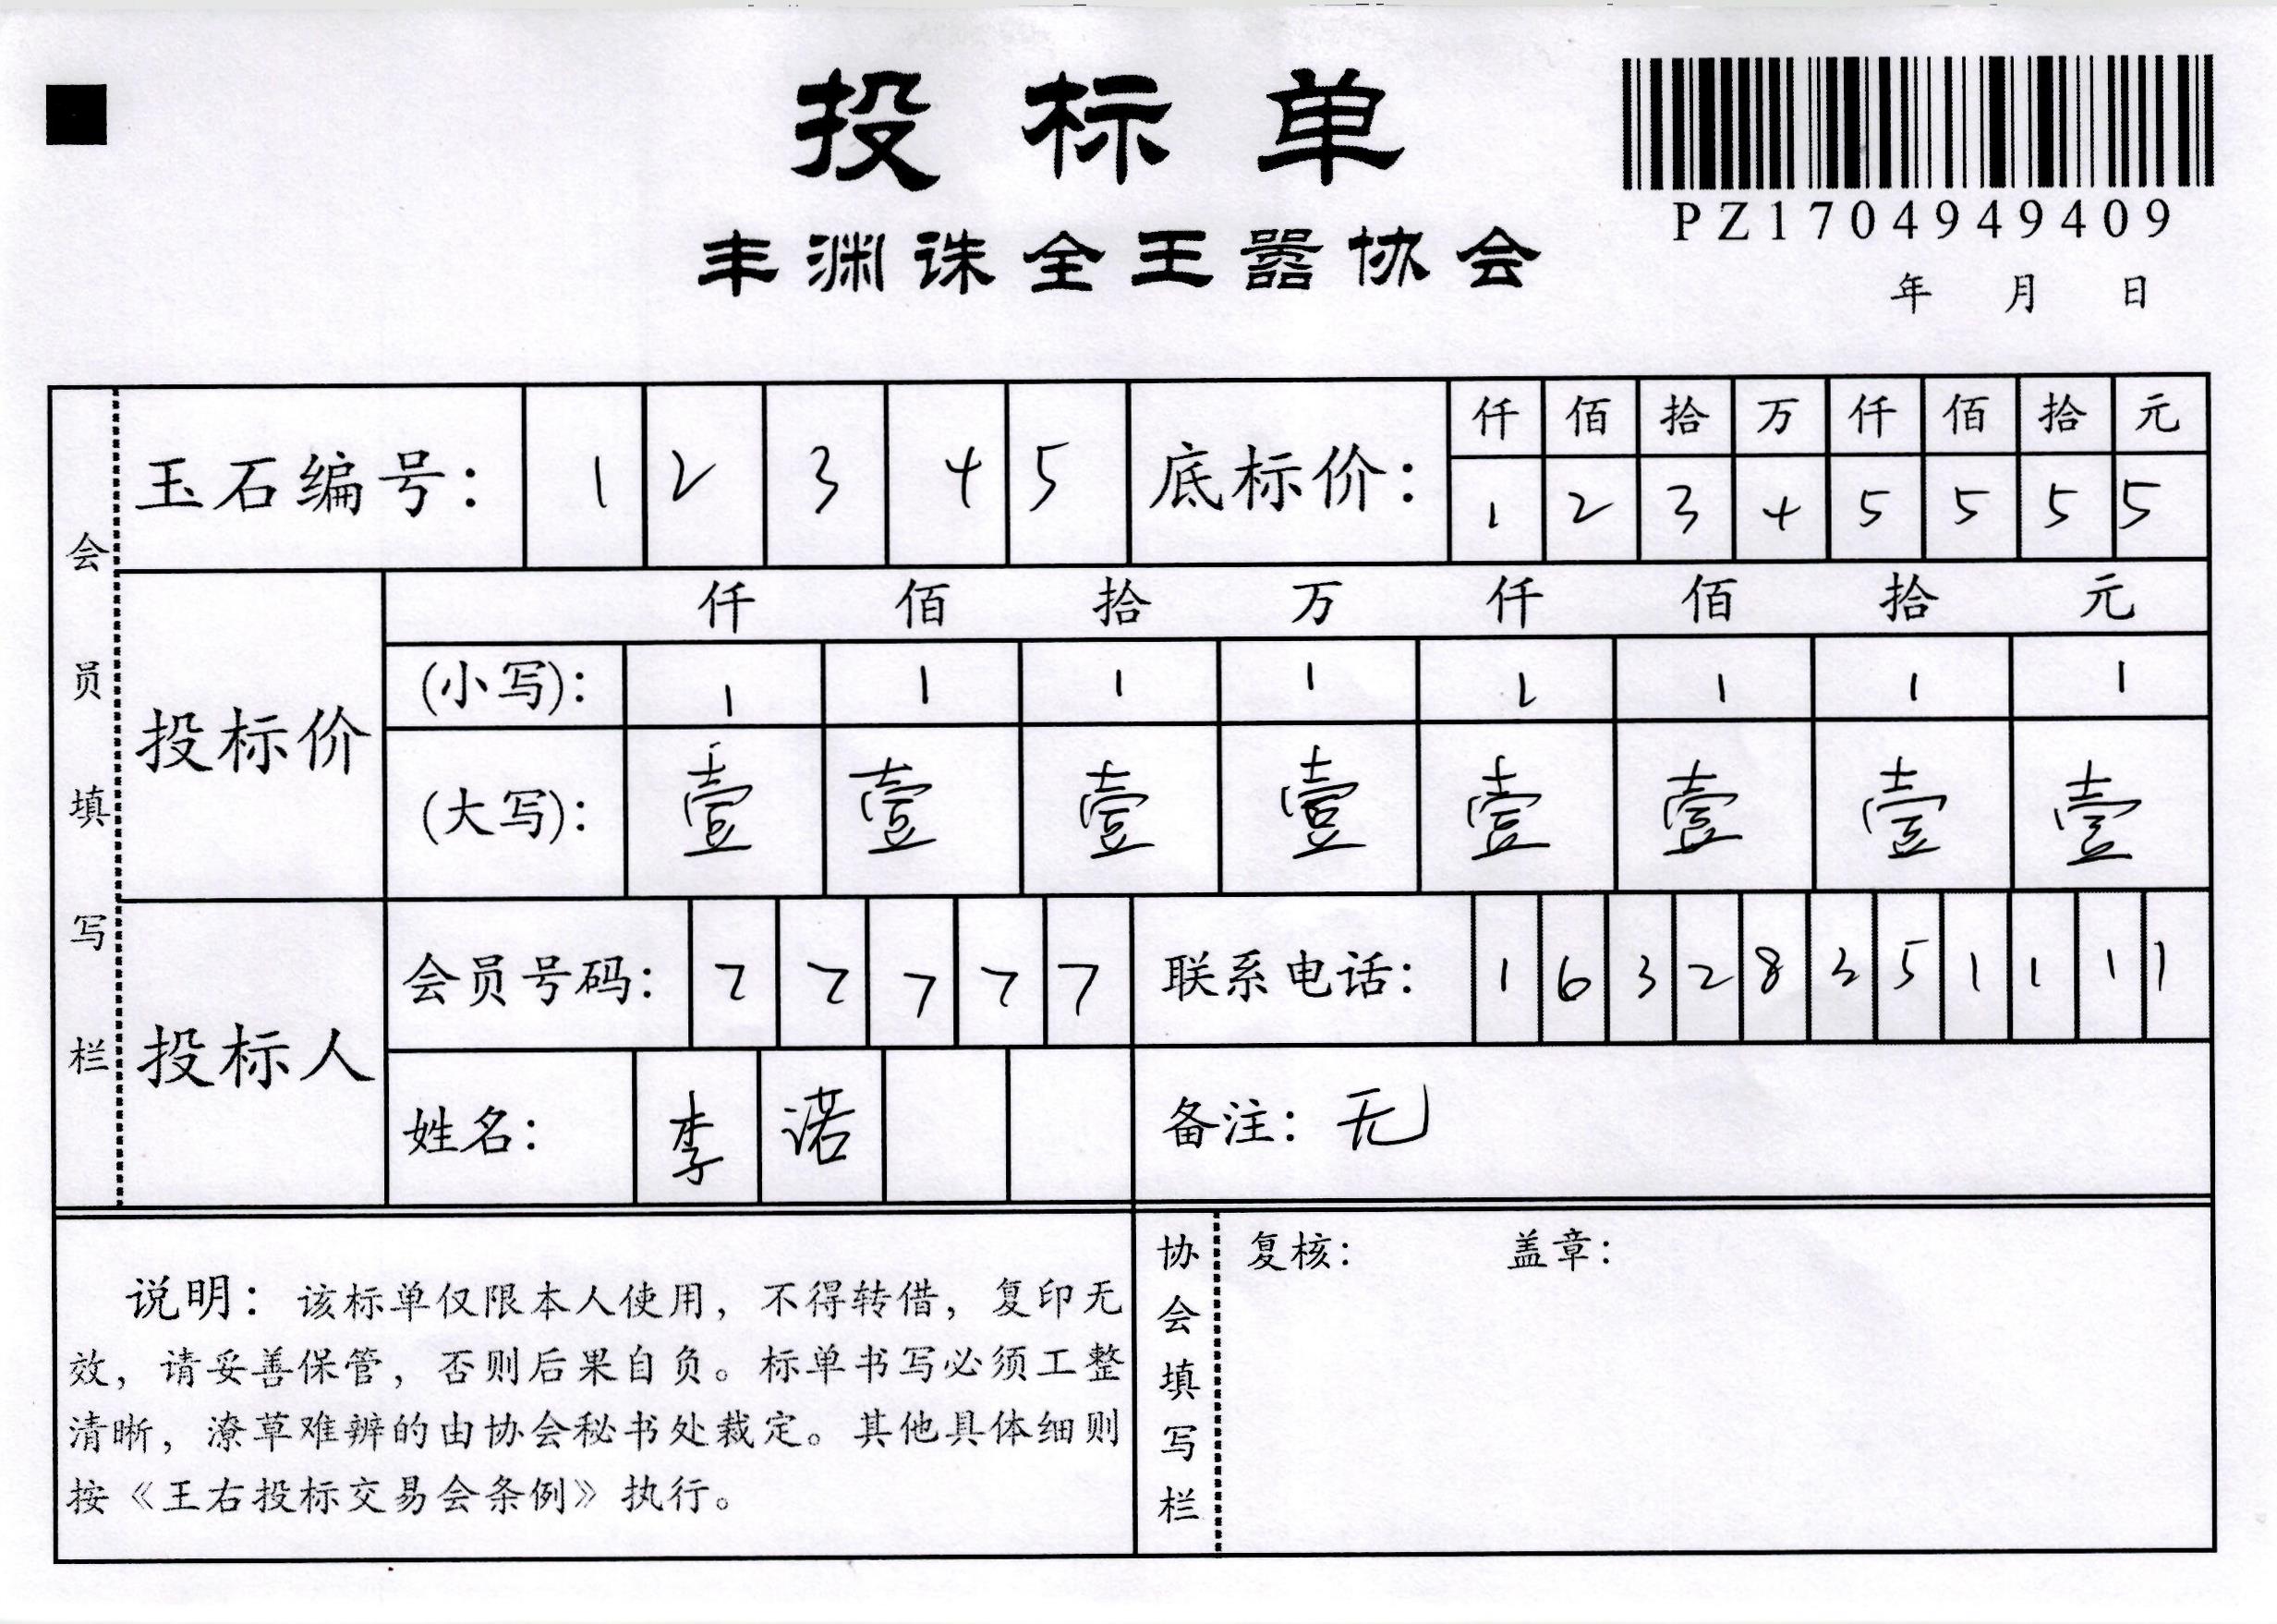 投标单
PZ1704949409
丰渊诛全王嚣协会
年 月 日
会员填写栏
玉石编号： 1 2 3 4 5
底标价： 仟 佰 拾 万 仟 佰 拾 元
1 2 3 4 5 5 5 5
投标价
仟 佰 拾 万 仟 佰 拾 元
(小写)： 1 1 1 1 1 1 1 1
(大写)： 壹 壹 壹 壹 壹 壹 壹 壹
投标人
会员号码： 7 7 7 7 7
联系电话： 1 6 3 2 8 3 5 1 1 1 1
姓名： 李 诺
备注：无
说明：该标单仅限本人使用，不得转借，复印无
效，请妥善保管，否则后果自负。标单书写必须工整
清晰，潦草难辨的由协会秘书处裁定。其他具体细则
按《王右投标交易会条例》执行。
协会填写栏
复核： 盖章：